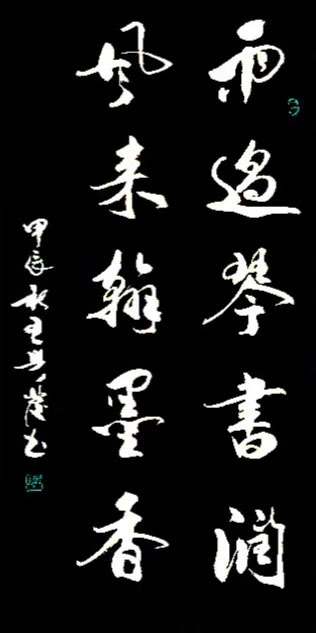 雨過琴書潤
風来翰墨香
甲辰秋王興